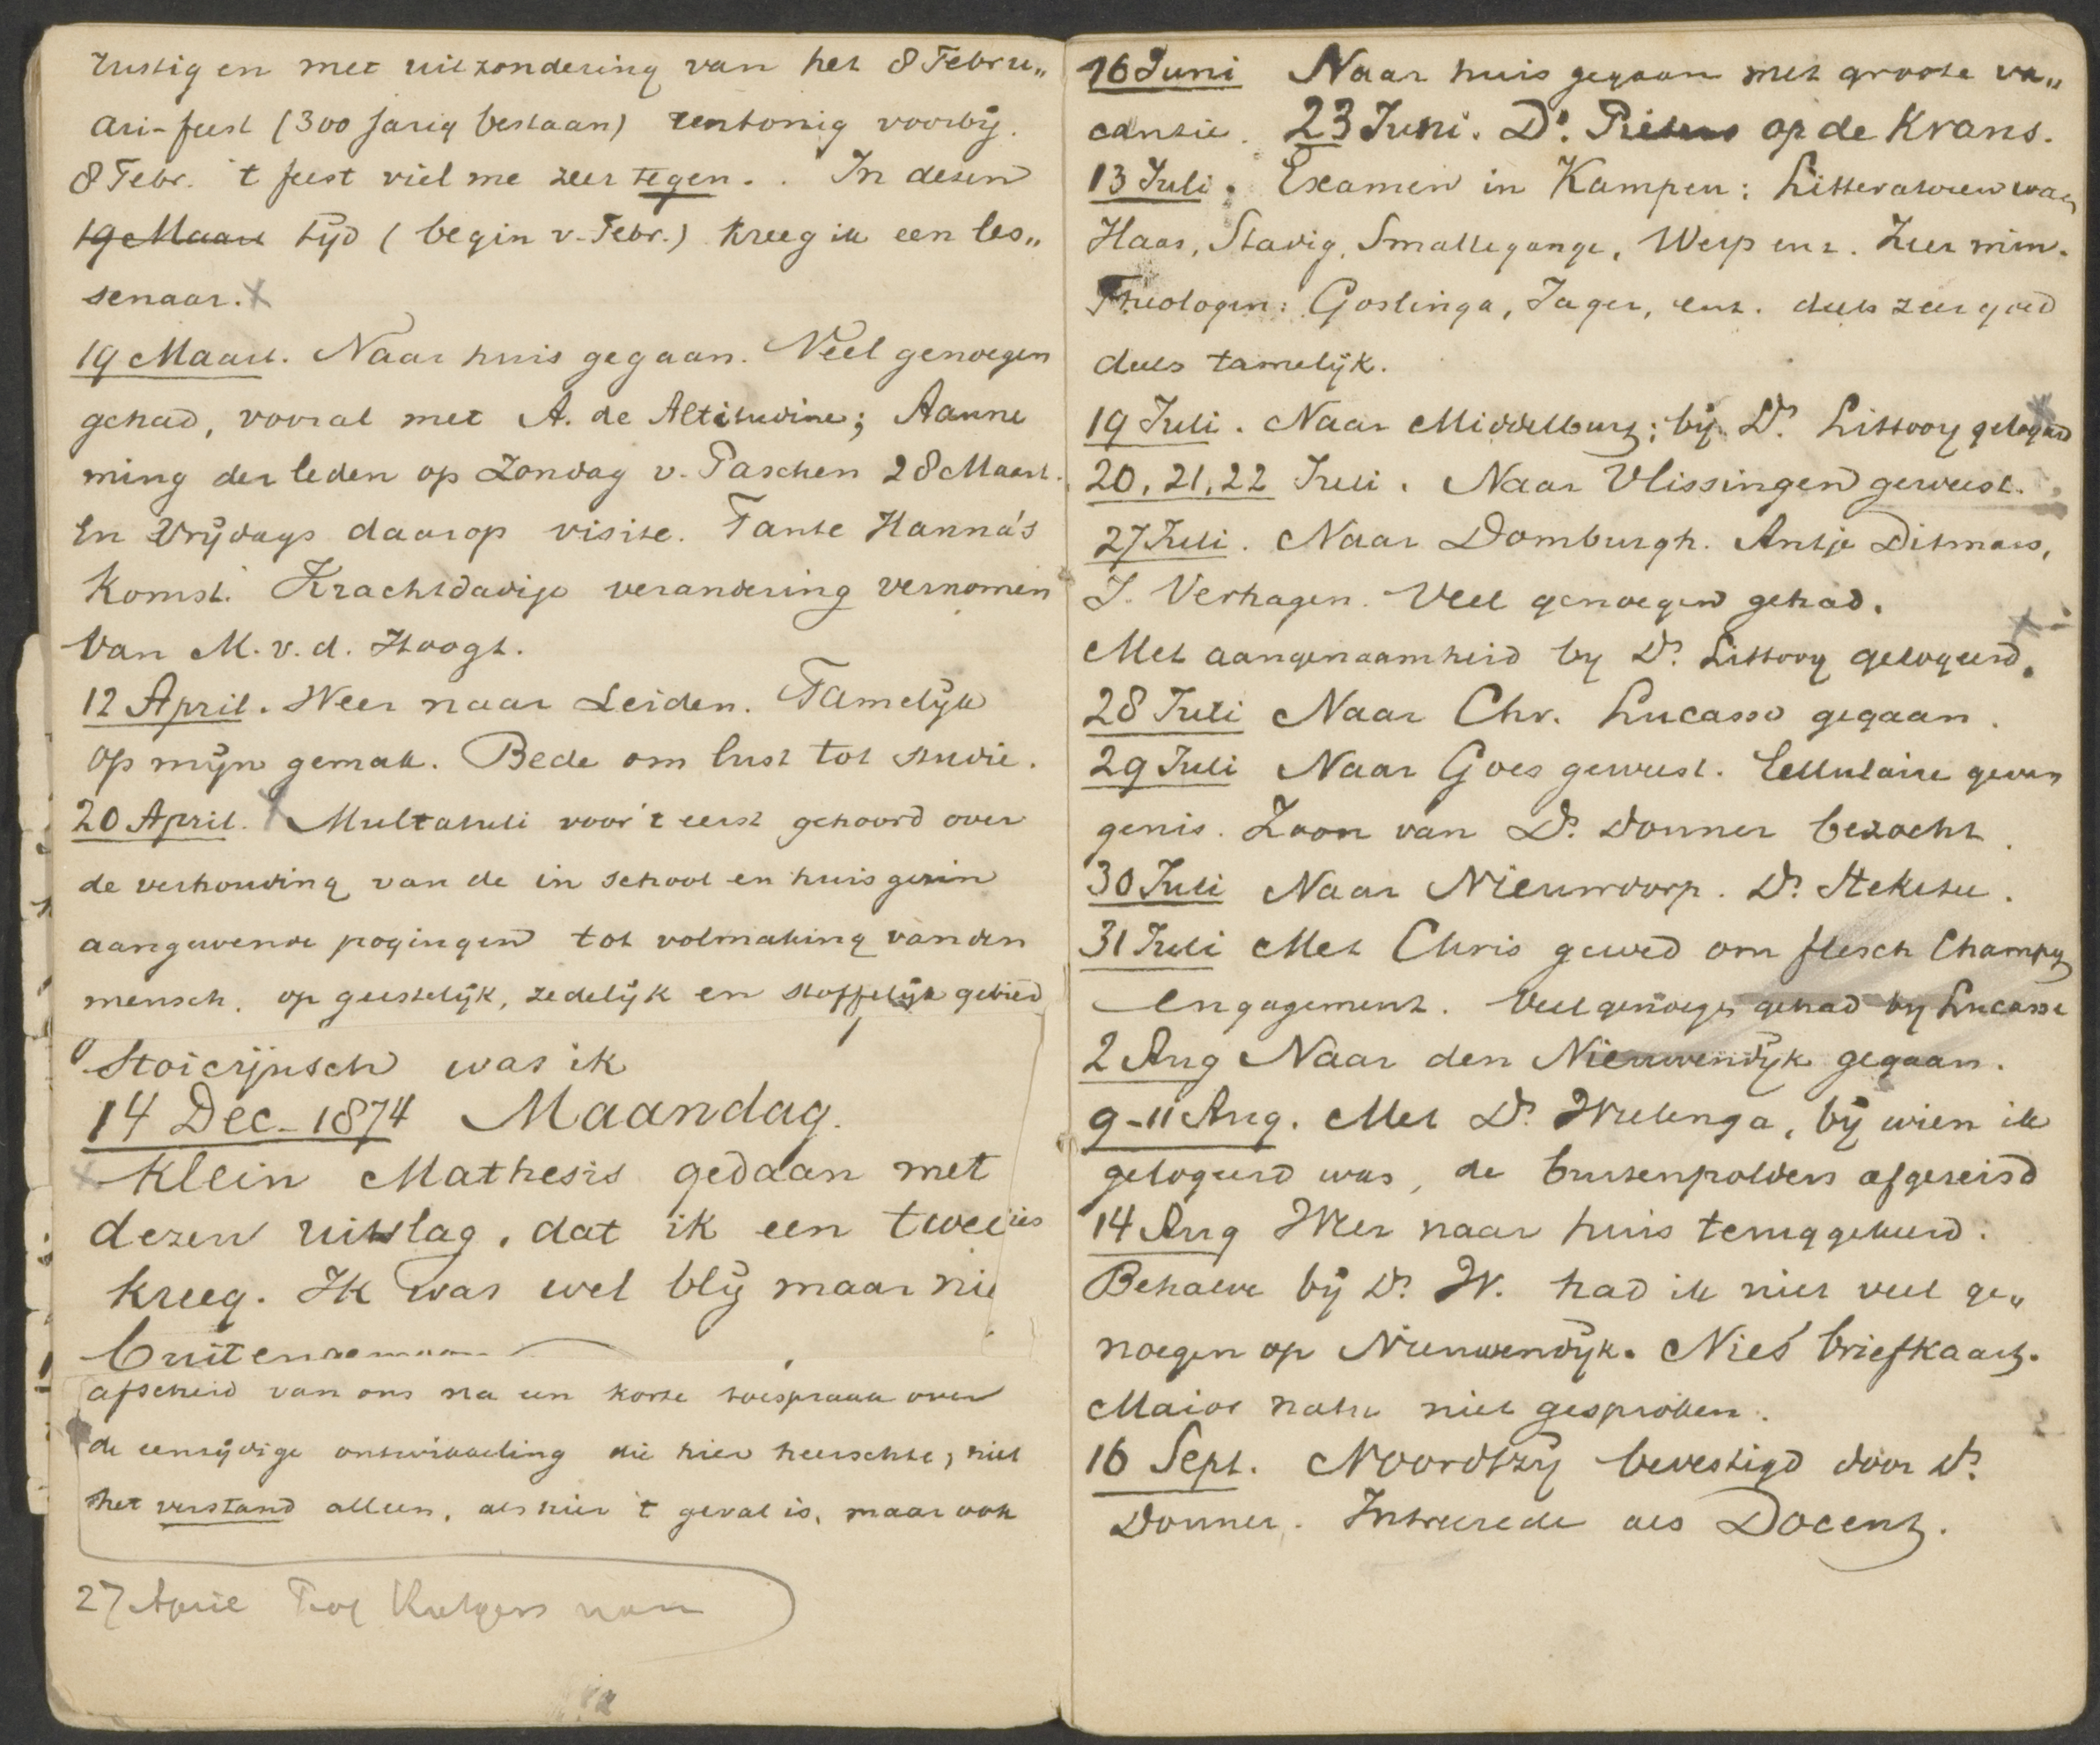 rustig en met uitzondering van het 8 Febru„
ari-feest (300 jarig bestaan) eentonig voorbij.
8 Febr. 't feest viel me zeer tegen. . In dezen
19 Maart tijd (begin v. Febr.) kreeg ik een les„
senaar.
19 Maart. Naar huis gegaan. Veel genoegen
gehad, vooral met A. de Altitudine; Aanne
ming der leden op Zondag v. Paschen 28 Maart.
En Vrijdags daarop visite. Tante Hanna's
komst. Krachtdadige verandering vernomen
van M. v. d. Hoogt.
12 April. Weer naar Leiden. Tamelijk
op mijn gemak. Bede om lust tot studie.
20 April. Multatuli voor 't eerst gehoord over
de verhouding van de in school en huisgezin
aangewende pogingen tot volmaking van den
mensch, op geestelijk, zedelijk en stoffelijk gebied
Stoicijnsch was ik
14 Dec. 1874 Maandag.
Klein Mathesis gedaan met
dezen uitslag, dat ik een twee
kreeg. Ik was wel blij maar nie
buitengemoon
afscheid van ons na een korte toespraak over
de eenzijdige ontwikkeling die hier heerschte; niet
het verstand alleen, als hier 't geval is, maar ook
27 April Prof Rutgers van
16 Juni Naar huis gegaan met groote va„
cantie. 23 Juni. Ds. Pieters op de Krans.
13 Juli. Examen in Kampen: Litteratoren van
Haar, Stadig, Smallegange, Werp enz. Zeer min.
Theologen: Goslinga, Jager, enz. deels zeer goed
deels tamelijk.
19 Juli. Naar Middelburg; bij Ds. Littooy gelogeerd
20, 21, 22 Juli. Naar Vlissingen geweest.
27 Juli. Naar Domburgh. Antje Ditmars,
J. Verhagen. Veel genoegen gehad.
Met aangenaamheid by Ds. Littooy gelogeerd.
28 Juli Naar Chr. Lucasse gegaan.
29 Juli Naar Goes geweest. Cellulaire gevan
genis. Zoon van Ds. Donner bezocht.
30 Juli Naar Nieuwdorp. Ds. Steketee.
31 Juli Met Chris gewed om flesch Champag
engagement. Veel genoegen gehad by Lucasse
2 Aug Naar den Nieuwendijk gegaan.
9-11 Aug. Met Ds. Wielenga, bij wien ik
gelogeerd was, de buitenpolders afgereisd
14 Aug Weer naar huis teruggekeerd.
Behalve bij Ds. W. had ik niet veel ge„
noegen op Nieuwendijk. Nies' briefkaart.
Maior natu niet gesproken.
16 Sept. Noordtzij bevestigd door Ds.
Donner. Intreerede als Docent.